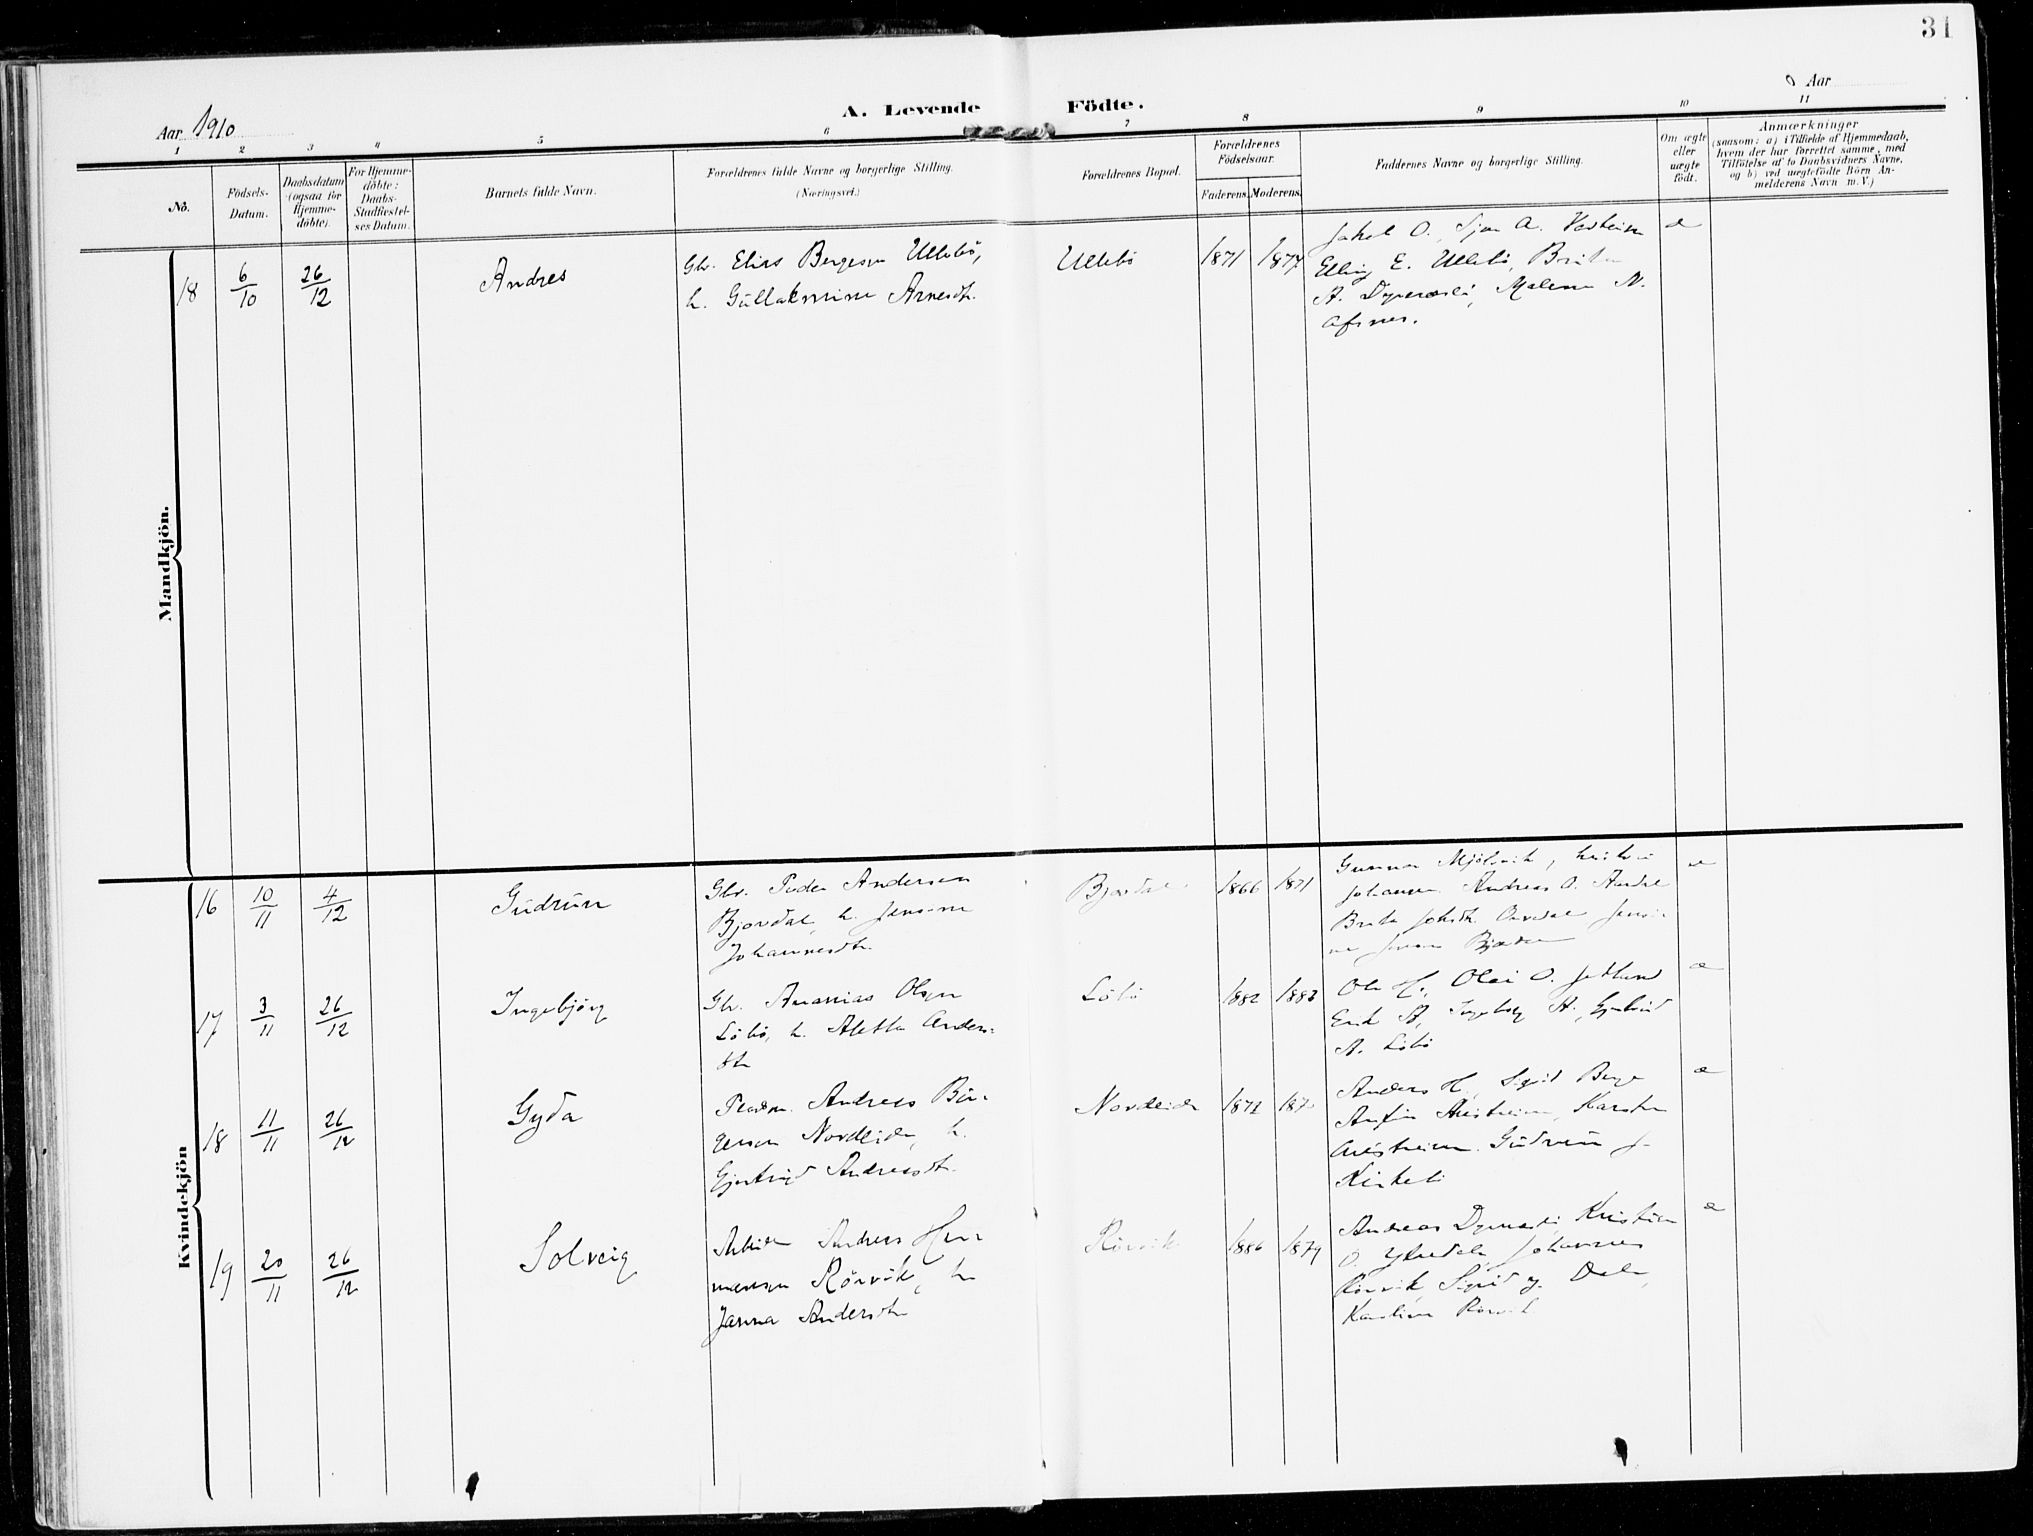 31
A. Levende Födte.
Aar 1910
0 Aar
1 2 3 4 5 6 7 8 9 10 11
No.
Födsels-Datum.
Daabsdatum (ogsaa for Hjemmedöbte).
For Hjemmedöbte: Daabs-Stadfæstelses Datum.
Barnets fulde Navn.
Forældrenes fulde Navne og borgerlige Stilling.
(Næringsvei.)
Forældrenes Bopæl.
Forældrenes Födselsaar.
Faderens. Moderens.
Faddernes Navne og borgerlige Stilling.
Om ægte eller uægte födt.
Anmærkninger
(saasom: a) i Tilfælde af Hjemmedaab,
hvem der har forrettet samme, med
Tilföielse af to Daabsvidners Navne,
og b) ved uægtefödte Börn An-
melderens Navn m. V.)
Mandkjön.
18 6/10 26/12 Andres
Gbr. Elias Bergesen Ullebö,
h. Gullaksmine Arnesdtr.
Ullebö 1871 1874
Jakob O., A.
Elling E. Ullebö, Brita
A. Malene N.
æ
Kvindekjön
16 10/11 4/12 Gudrun
Gbr. Peder Andersen
Bjordal, h. Jensine
Johannesdtr.
Bjordal 1866 1871
Gunnar
Johansen. Andreas O.
Brita
æ
17 3/11 26/12 Ingebjörg
Gbr. Ananias Olsen
Löbö, h. Aletta Anders-
dtr
Löbö 1882 1883
Ole H., Olai O.
Erik A, Ingeborg A.,
A. Löbö
æ
18 11/11 26/12 Gyda
Andreas Bör-
gesen Nordeide, h.
Gjertrud Andreasdtr.
Nordeide 1872
Anders H, Sigrid Berge
Karsten
Gudrun J.
Kirkebö
æ
19 20/11 26/12 Solveig
Arbeider Andreas Her-
mansen Rörvik, h.
Janna Andersdtr
Rörvik 1886 1879
Andreas Kristian
O. Ytredal, Johannes
Rörvik, Sigrid Dale,
Karoline Rörvik
æ